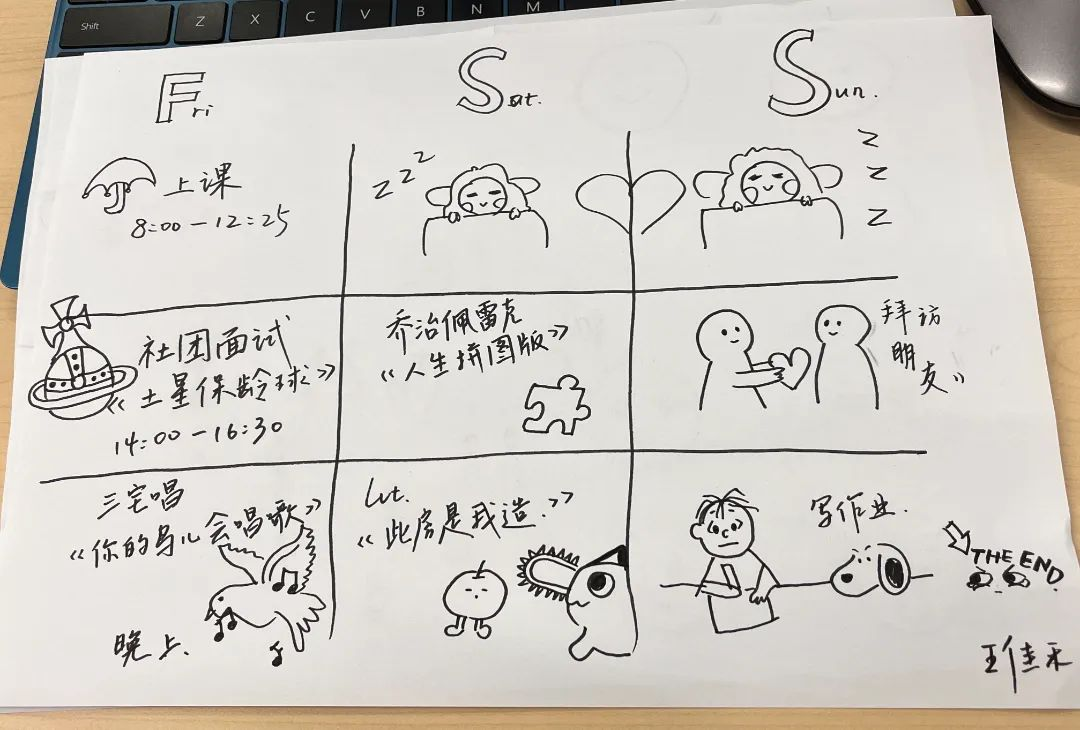 Shift Z X C V B N M
Fri
Sat.
Sun.
上课
8:00-12:25
z z z
z
z
z
社团面试
《土星保龄球》
14:00-16:30
乔治佩雷克
《人生拼图版》
拜访
朋友》
三宅唱
《你的鸟儿会唱歌》
晚上.
《此房是我造.》
写作业.
THE END
王佳禾